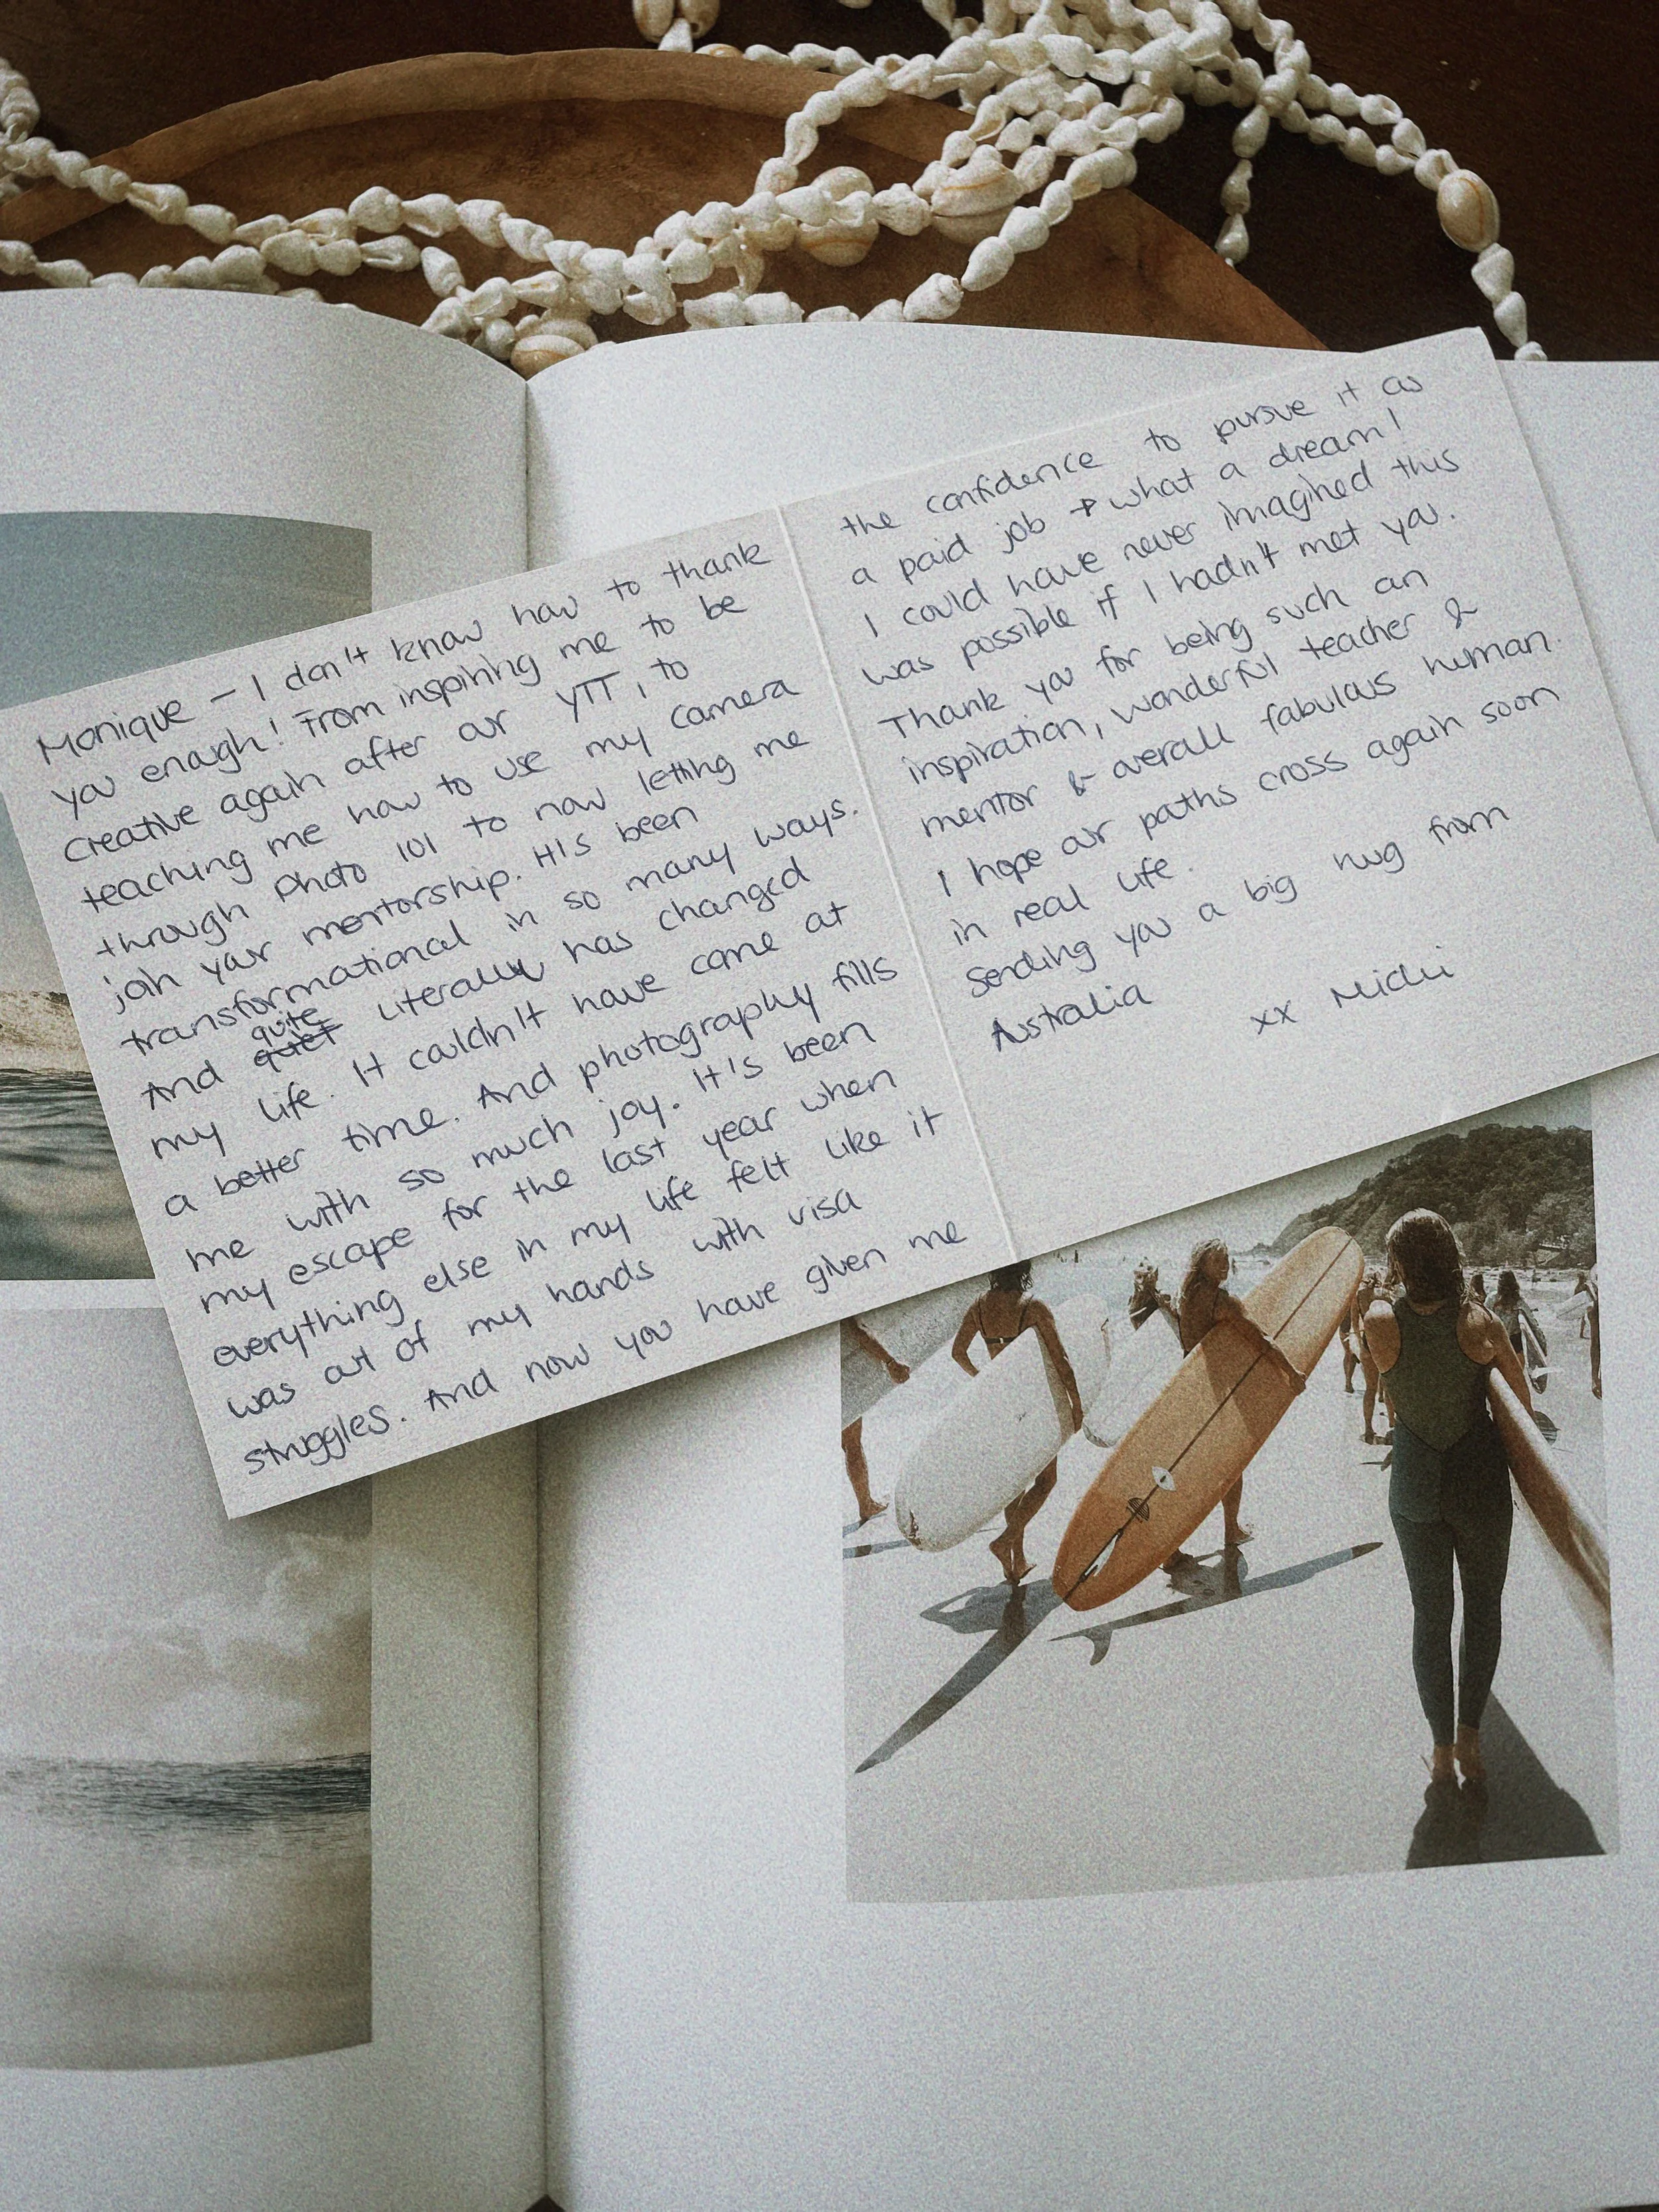 Monique – I don't know how to thank
you enough! From inspiring me to be
creative again after our YTT, to
teaching me how to use my camera
through photo 101 to now letting me
join your mentorship. It's been
transformational in so many ways.
And quite quiet literally has changed
my life. It couldn't have come at
a better time. And photography fills
me with so much joy. It's been
my escape for the last year when
everything else in my life felt like it
was out of my hands with visa
struggles. And now you have given me
the confidence to pursue it as
a paid job → what a dream!
I could have never imagined this
was possible if I hadn't met you.
Thank you for being such an
inspiration, wonderful teacher &
mentor & overall fabulous human.
I hope our paths cross again soon
in real life.
Sending you a big hug from
Australia
xx Michi